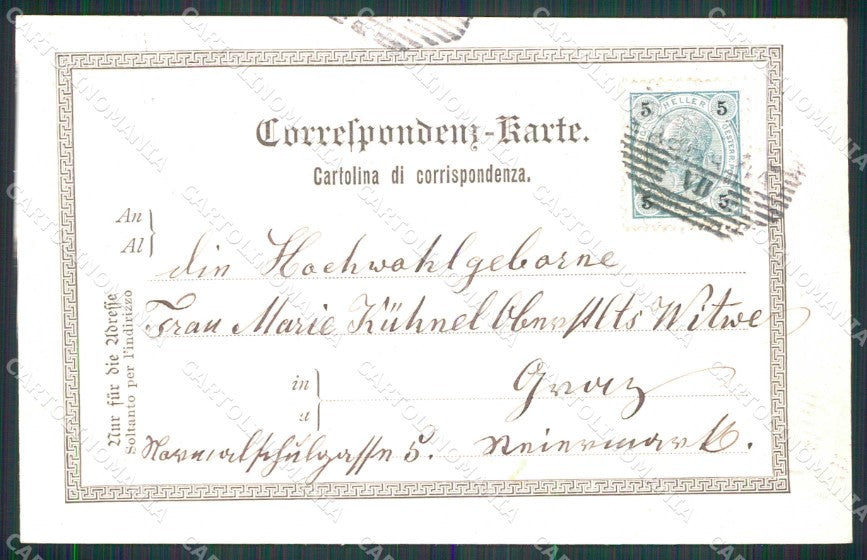 Correspondenz-Karte.
Cartolina di corrispondenza.
5 HELLER 5
5 5
VII
An
Al
die Hochwohlgeborne
Frau Marie Kühnel Oberstlts Witwe
in
a
Graz
Normalschulgasse 5. Steiermark.
Nur für die Adresse
Soltanto per l'indirizzo
CARTOLINOMANIA